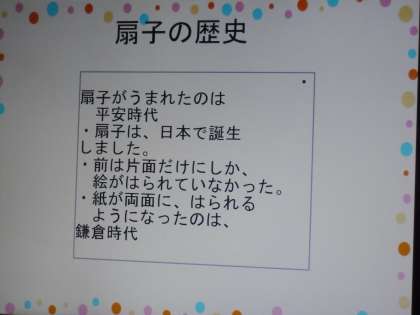 扇子の歴史
扇子がうまれたのは
平安時代
・扇子は、日本で誕生
しました。
・前は片面だけにしか、
絵がはられていなかった。
・紙が両面に、はられる
ようになったのは、
鎌倉時代